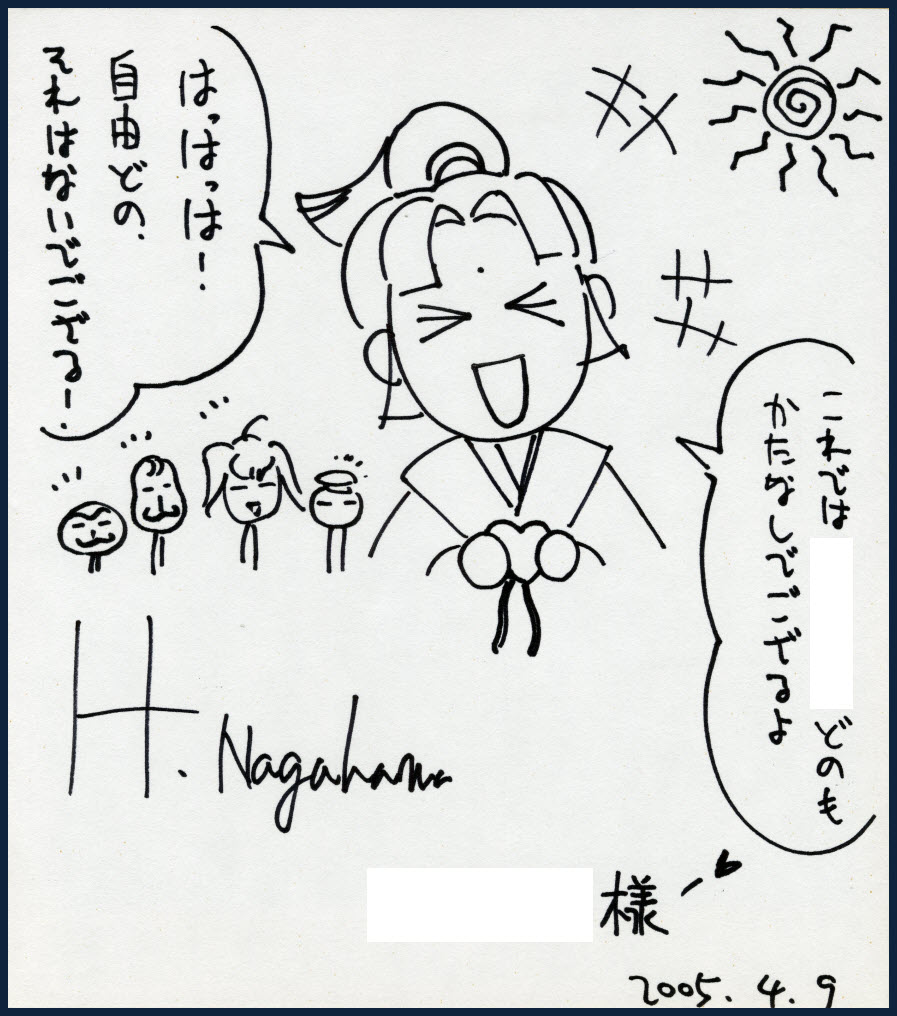 はっはっは！
自由どの、
それはないでござるー。
これでは
どのも
かたなしでござるよ
H. Nagahama
様
2005. 4. 9